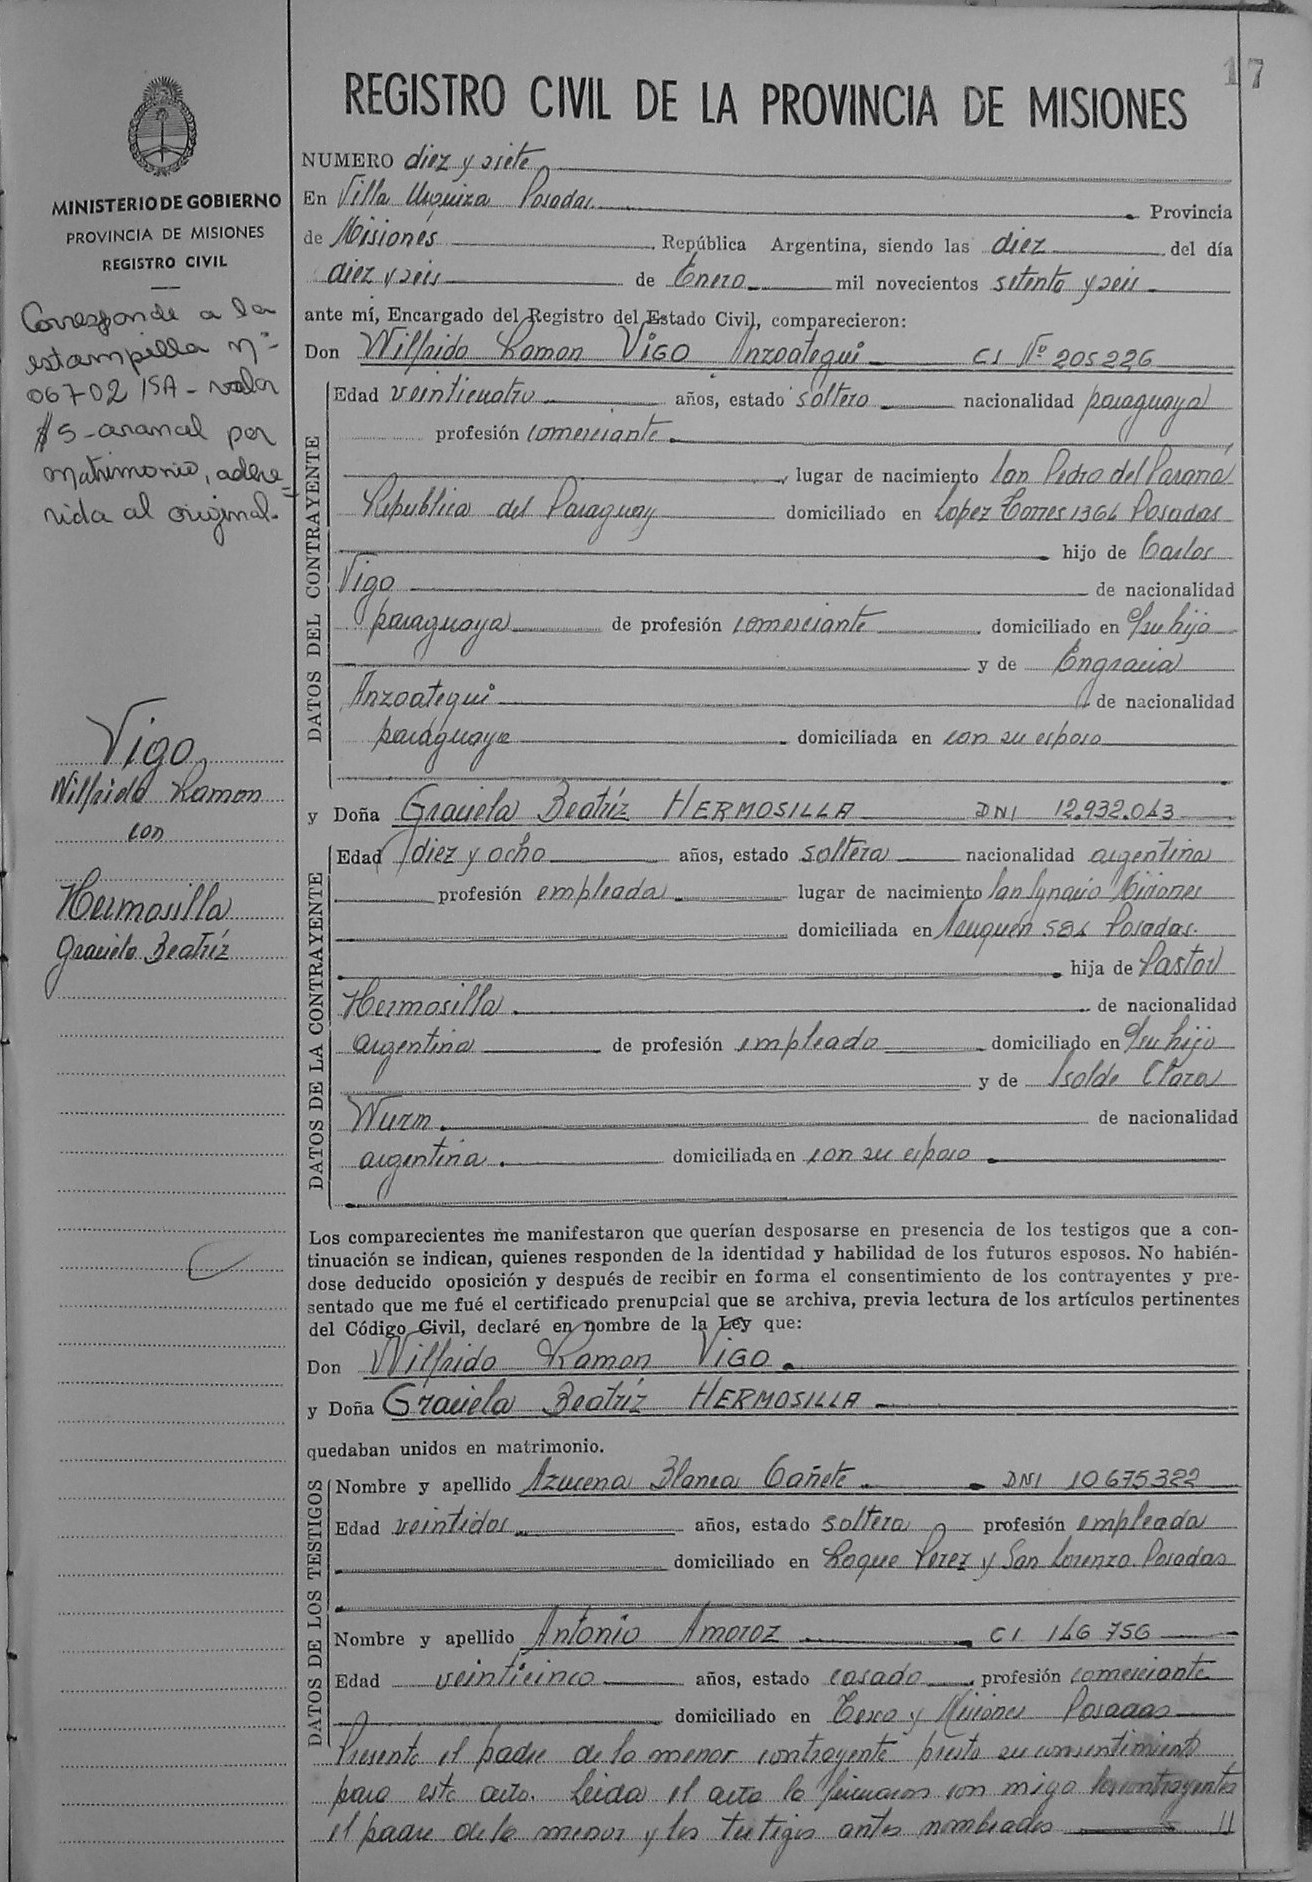 17
REGISTRO CIVIL DE LA PROVINCIA DE MISIONES
MINISTERIO DE GOBIERNO
PROVINCIA DE MISIONES
REGISTRO CIVIL
Corresponde a la
estampilla Nº
06702 ISA - valor
$5 - arancel por
matrimonio, adhe=
rida al original.
Vigo
Wilfrido Ramon
con
Hermosilla
Graciela Beatríz
NUMERO diez y siete
En Villa Urquiza Posadas. Provincia
de Misiones República Argentina, siendo las diez del día
diez y seis de Enero mil novecientos setenta y seis
ante mí, Encargado del Registro del Estado Civil, comparecieron:
Don Wilfrido Ramon VIGO Anzoategui CI Nº 205226
DATOS DEL CONTRAYENTE
Edad veinticuatro años, estado soltero nacionalidad paraguaya
profesión comerciante
lugar de nacimiento San Pedro del Paraná
Republica del Paraguay domiciliado en Lopez Torres 1364 Posadas
hijo de Carlos
Vigo de nacionalidad
paraguaya de profesión comerciante domiciliado en c/su hijo
y de Engracia
Anzoategui de nacionalidad
paraguaya domiciliada en con su esposo
y Doña Graciela Beatríz HERMOSILLA DNI 12.932.043
DATOS DE LA CONTRAYENTE
Edad diez y ocho años, estado soltera nacionalidad argentina
profesión empleada lugar de nacimiento San Ignacio Misiones
domiciliada en Neuquén 584 Posadas.
hija de Pastor
Hermosilla de nacionalidad
argentina de profesión empleado domiciliado en c/su hija
y de Isolde Clara
Wurm de nacionalidad
argentina domiciliada en con su esposo
Los comparecientes me manifestaron que querían desposarse en presencia de los testigos que a con-
tinuación se indican, quienes responden de la identidad y habilidad de los futuros esposos. No habién-
dose deducido oposición y después de recibir en forma el consentimiento de los contrayentes y pre-
sentado que me fué el certificado prenupcial que se archiva, previa lectura de los artículos pertinentes
del Código Civil, declaré en nombre de la Ley que:
Don Wilfrido Ramon VIGO
y Doña Graciela Beatríz HERMOSILLA
quedaban unidos en matrimonio.
DATOS DE LOS TESTIGOS
Nombre y apellido Azucena Blanca Cañete DNI 10675322
Edad veintidos años, estado soltera profesión empleada
domiciliado en Roque Perez y San Lorenzo Posadas
Nombre y apellido Antonio Amoroz CI 146 756
Edad veinticinco años, estado casado profesión comerciante
domiciliado en y Misiones Posadas
Presente el padre de la menor contrayente presta su consentimiento
para este acto. Leida el acta la firmaron con migo los contrayentes
el padre de la menor y los testigos antes nombrados